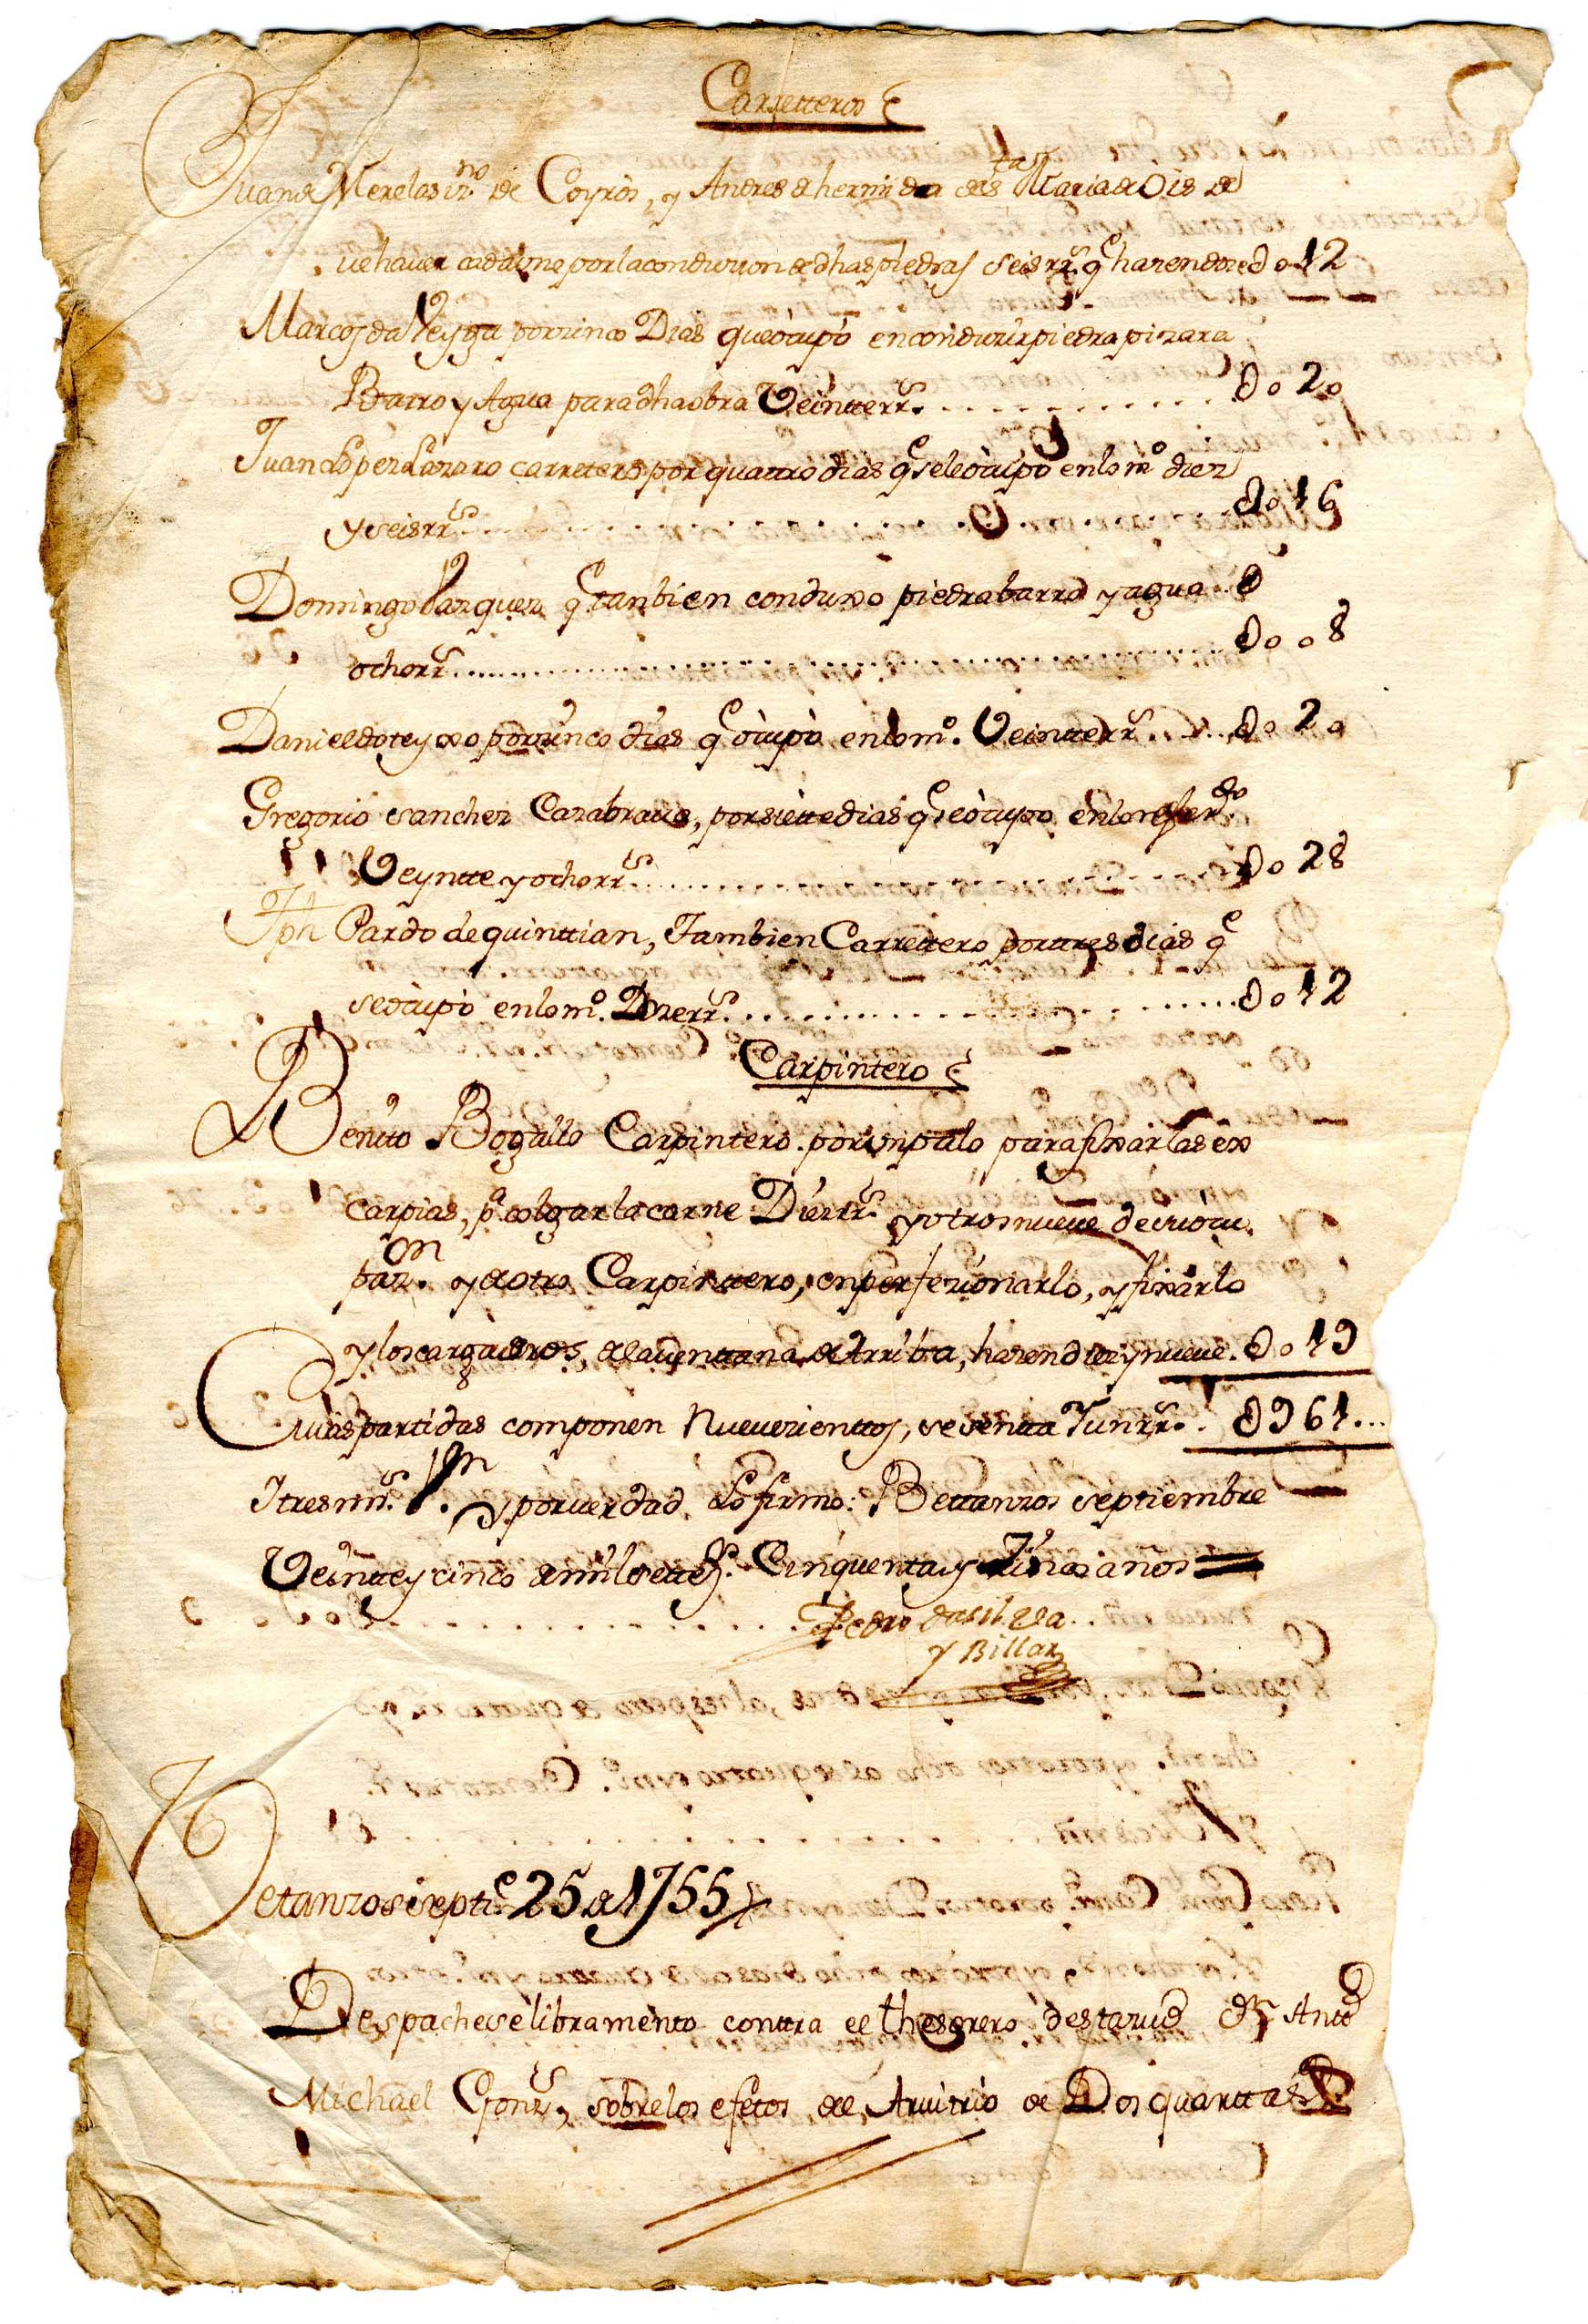 Carretteros
Juan de Merelas vz.no de Coyròs, y Andres de hermida de S.ta Maria de Ois de
ve haver cada vno por la conduzion de dhas piedras seis rr.s q.e hazen doze do 12
Marcos da Veyga por zinco Dias que òcupò en conduzir piedra pizara
Barro y Agua para dha obra Veintte rr.s Do 20
Juan Lopez Lazaro carretero por quattro dias q.e se le òcupò en lo m.o diez
y seis rr.s Do 16
Domingo Vazquez q.e tanbien conduxo piedra barro y agua
ocho rr.s Do o8
Daniel do teyxo por zinco dias q.e òcupò en lo m.o Veintte rr.s Do 20
Gregorio Sanchez Cazabraua, por siette dias q.e se òcupo en lo refer.do
Veyntte y ocho rr.s Do 28
Jph Pardo de quinttian, Tambien Carrettero por tres dias q.e
se òcupò en lo m.o Doze rr.s Do 12
Carpintero
Benito Bogallo Carpintero por vn palo para fixar las ex
carpias, p.a colgar la carne Diez rr.s y otros nueve de su ocu
paz.on y de otro Carpinttero, en perfezionarlo, y fixarlo
y los cargaderos, de la venttana de Arriba, hazen diez y nueve. Do 19
Cuias partidas componen Nueuezienttos, sesentta Y un rr.s D961
Y tres mrs. V.on y por verdad lo firmo: Bettanzos septiembre
Veintte y cinco de mil sette.s Cinquenta y Zinco años
Pedro da silva
y Billar
Betanzos septi.e 25 de 1755
Despachese libramento conttra el thesorero desta ziud Dn Antt.o
Michael Gonz.s, sobre los efetos del Arvitrio de Dos quarttas